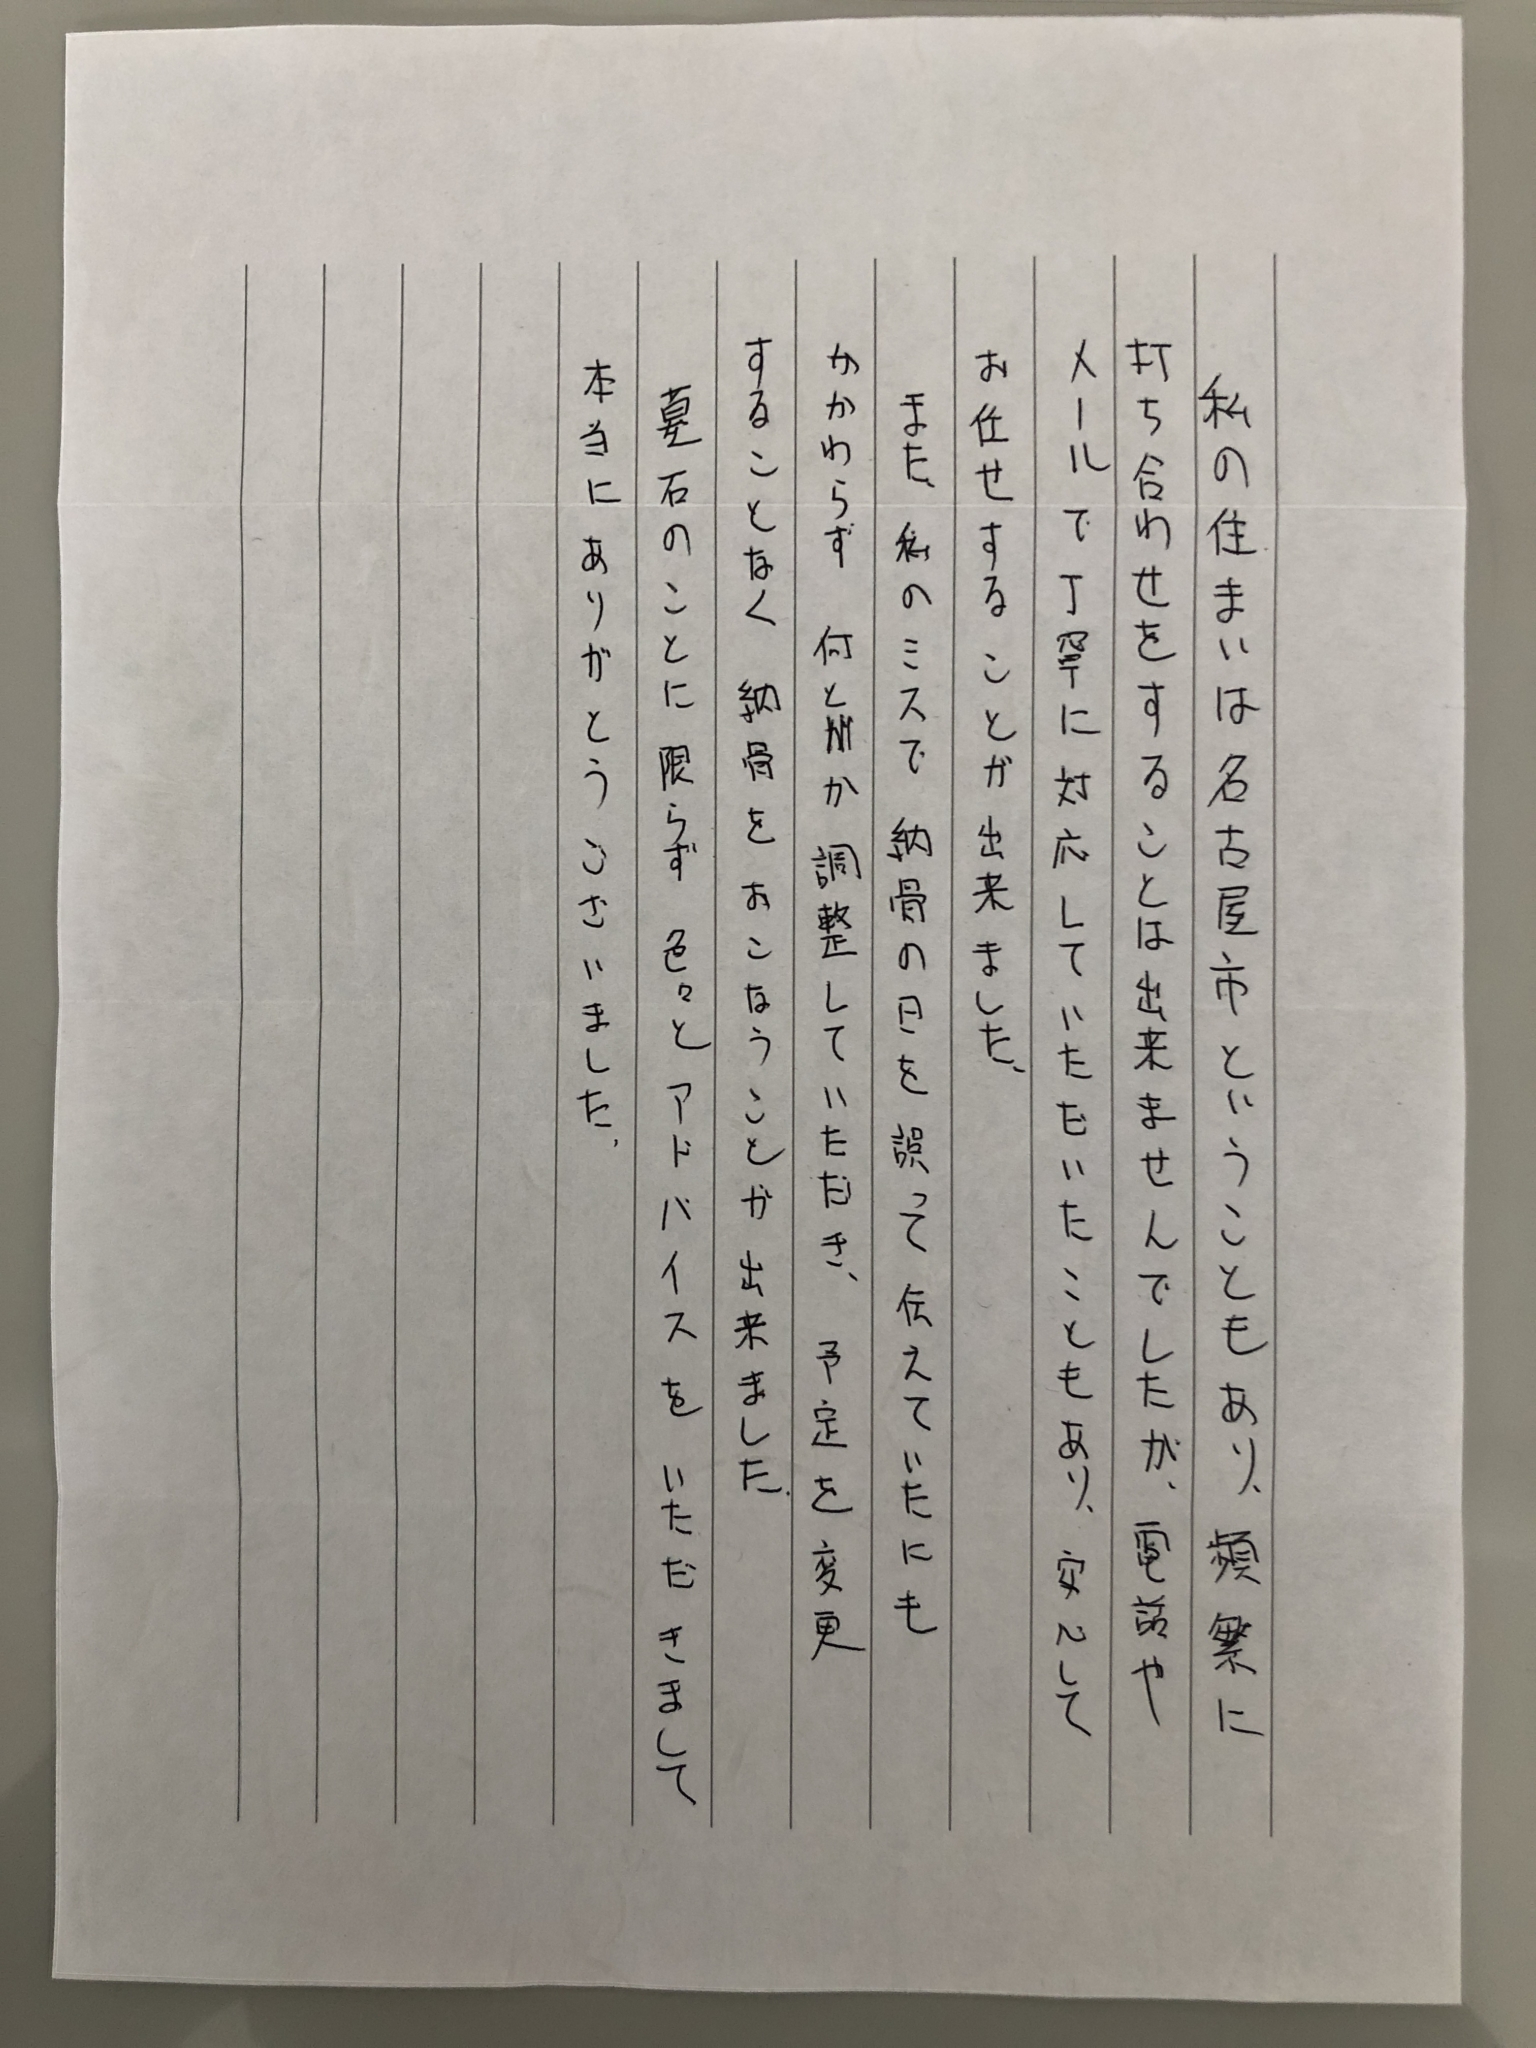 私の住まいは名古屋市ということもあり、頻繁に
打ち合わせをすることは出来ませんでしたが、電話や
メールで丁寧に対応していただいたこともあり、安心して
お任せすることが出来ました。
また、私のミスで納骨の日を誤って伝えていたにも
かかわらず何とか調整していただき、予定を変更
することなく納骨をおこなうことが出来ました。
墓石のことに限らず色々とアドバイスをいただきまして
本当にありがとうございました。